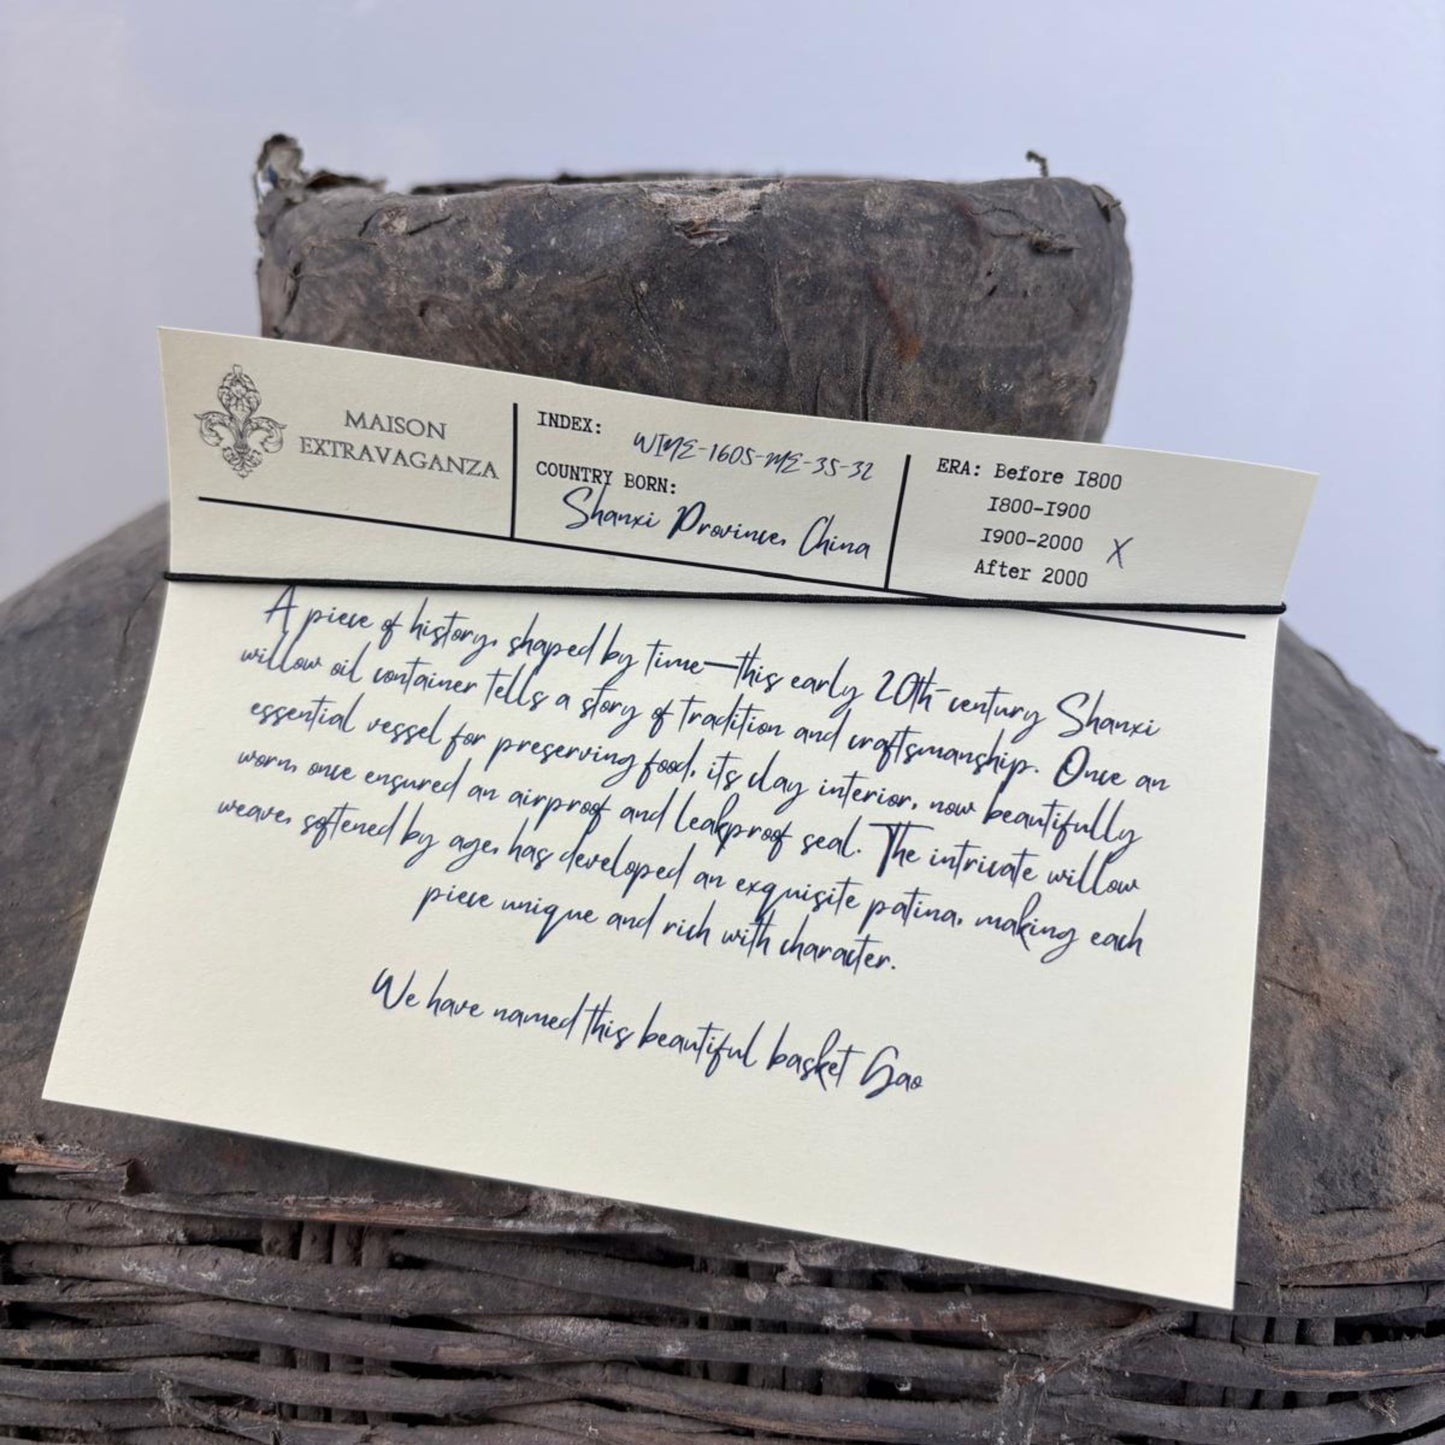 MAISON
EXTRAVAGANZA
INDEX:
WINE-1605-ME-35-32
COUNTRY BORN:
Shanxi Province, China
ERA: Before 1800
1800-1900
1900-2000 X
After 2000
A piece of history, shaped by time—this early 20th-century Shanxi
willow oil container tells a story of tradition and craftsmanship. Once an
essential vessel for preserving food, its clay interior, now beautifully
worn, once ensured an airproof and leakproof seal. The intricate willow
weave, softened by age, has developed an exquisite patina, making each
piece unique and rich with character.
We have named this beautiful basket Gao